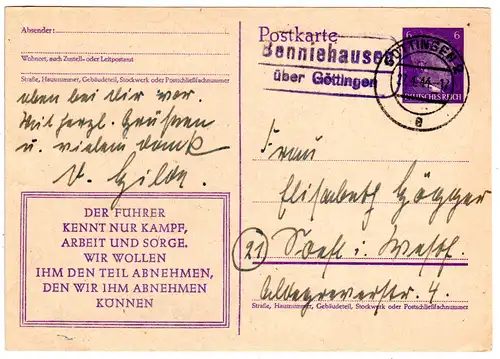 Absender:
Wohnort, auch Zustell- oder Leitpostamt
Straße, Hausnummer, Gebäudeteil, Stockwerk oder Postschließfachnummer
oben bei dir vor.
Mit herzl. Grüssen
u. vielem Dank
V. Gilde.
DER FÜHRER
KENNT NUR KAMPF,
ARBEIT UND SORGE.
WIR WOLLEN
IHM DEN TEIL ABNEHMEN,
DEN WIR IHM ABNEHMEN
KÖNNEN
Postkarte
Benniehausen
über Göttingen
GÖTTINGEN 2
44
e
6 6
DEUTSCHES REICH
Frau
Elisabeth
21 Soest i. Westf.
Aldegreverstr. 4.
Straße, Hausnummer, Gebäudeteil, Stockwerk oder Postschließfachnummer